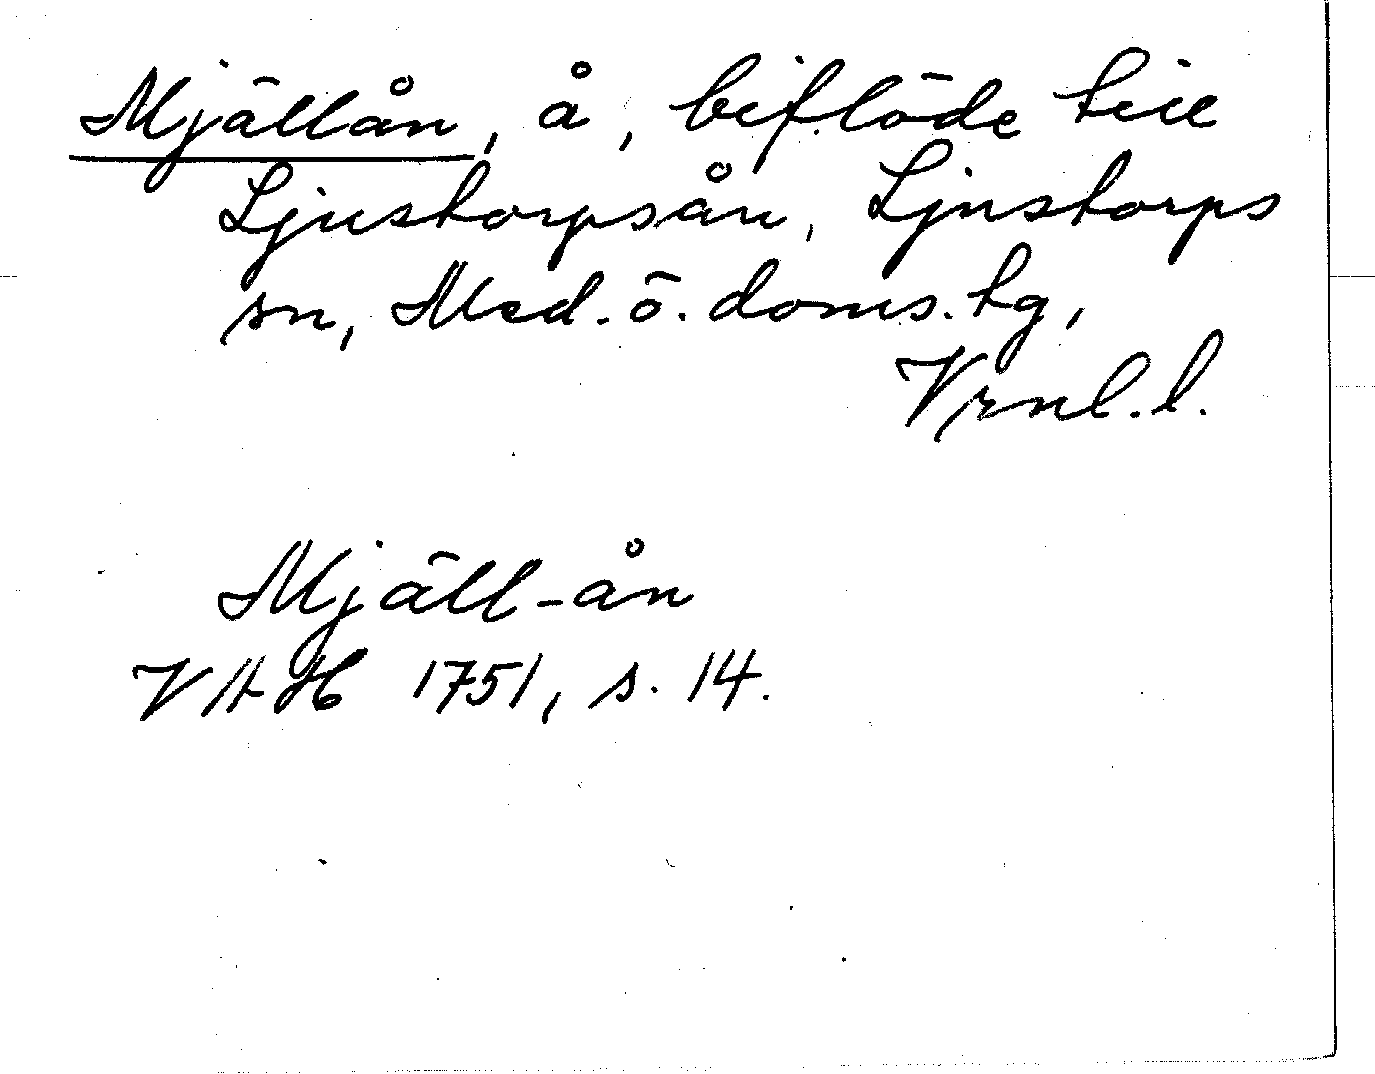 Mjällån, å, biflöde till
Ljustorpsån, Ljustorps
sn, Med. ö. doms. tg,
Vrnl. l.
Mjäll-ån
VAH 1751, s. 14.